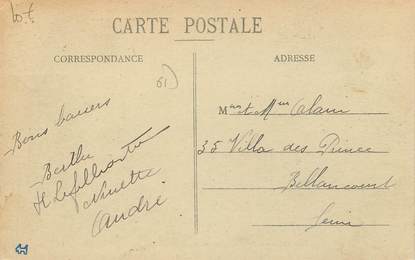 Lot
CARTE POSTALE
CORRESPONDANCE
ADRESSE
61)
Bons baisers
Berthe
Ninette
André
Mme et Mme Alain
35 Villa des Prince
Billancourt
Seine